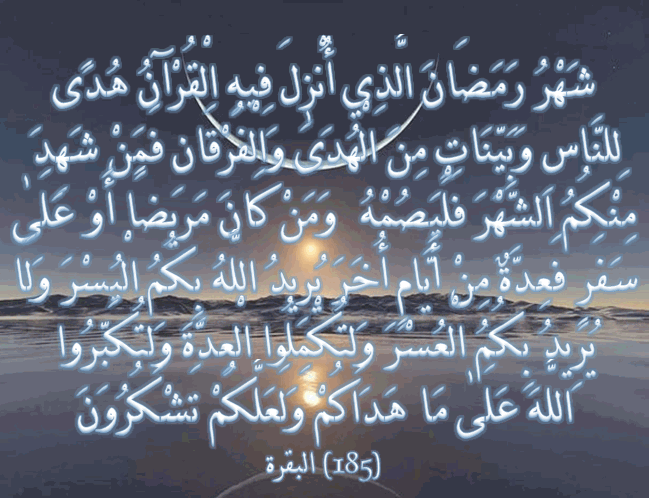 شَهْرُ رَمَضَانَ الَّذِي أُنزِلَ فِيهِ الْقُرْآنُ هُدًى
للنَّاسِ وَبَيِّنَاتٍ مِنَ الْهُدَى وَالْفُرْقَانِ فَمَنْ شَهِدَ
مِنْكُمُ الشَّهْرَ فَلْيَصُمْهُ وَمَنْ كَانَ مَرِيضًا أَوْ عَلَى
سَفَرٍ فَعِدَّةٌ مِنْ أَيَّامٍ أُخَرَ يُرِيدُ اللَّهُ بِكُمُ الْيُسْرَ وَلَا
يُرِيدُ بِكُمُ الْعُسْرَ وَلِتُكْمِلُوا الْعِدَّةَ وَلِتُكَبِّرُوا
اللَّهَ عَلَى مَا هَدَاكُمْ وَلَعَلَّكُمْ تَشْكُرُونَ
(185) البقرة